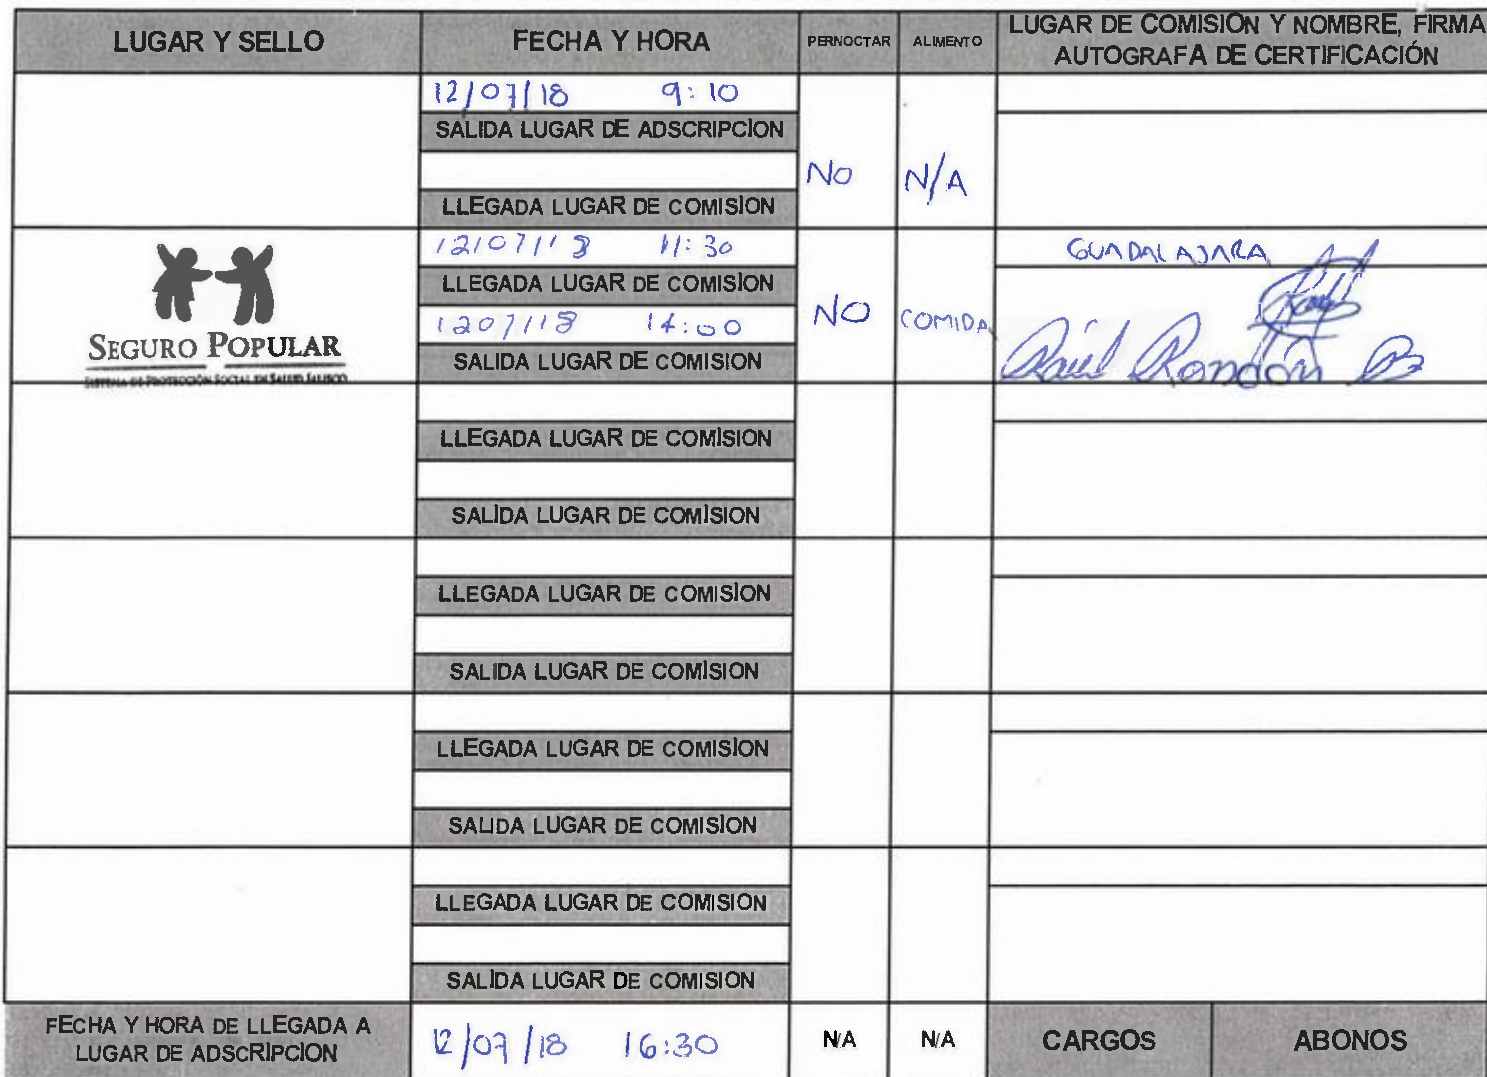 LUGAR Y SELLO FECHA Y HORA PERNOCTAR ALIMENTO LUGAR DE COMISION Y NOMBRE, FIRMA
AUTOGRAFA DE CERTIFICACIÓN
12/07/18 9:10
SALIDA LUGAR DE ADSCRIPCION
NO N/A
LLEGADA LUGAR DE COMISION
12/07/18 11:30 GUADALAJARA
LLEGADA LUGAR DE COMISION
1207/18 14:00 NO COMIDA
SEGURO POPULAR
SALIDA LUGAR DE COMISION Raúl Rondón
SISTEMA DE PROTECCIÓN SOCIAL EN SALUD JALISCO
LLEGADA LUGAR DE COMISION
SALIDA LUGAR DE COMISION
LLEGADA LUGAR DE COMISION
SALIDA LUGAR DE COMISION
LLEGADA LUGAR DE COMISION
SALIDA LUGAR DE COMISION
LLEGADA LUGAR DE COMISION
SALIDA LUGAR DE COMISION
FECHA Y HORA DE LLEGADA A
LUGAR DE ADSCRIPCION 12/07/18 16:30 N/A N/A CARGOS ABONOS